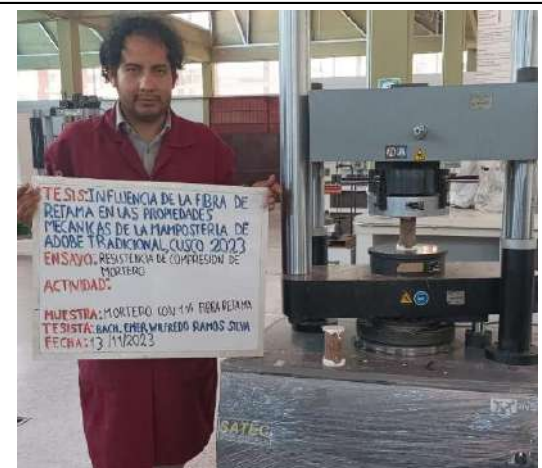 TESIS: INFLUENCIA DE LA FIBRA DE
RETAMA EN LAS PROPIEDADES
MECANICAS DE LA MAMPOSTERIA DE
ADOBE TRADICIONAL, CUSCO 2023
ENSAYO: RESISTENCIA DE COMPRESION DE
MORTERO
ACTIVIDAD:
MUESTRA: MORTERO CON 1% FIBRA RETAMA
TESISTA: BACH. EMER WILFREDO RAMOS SILVA
FECHA: 13/11/2023
SATEC